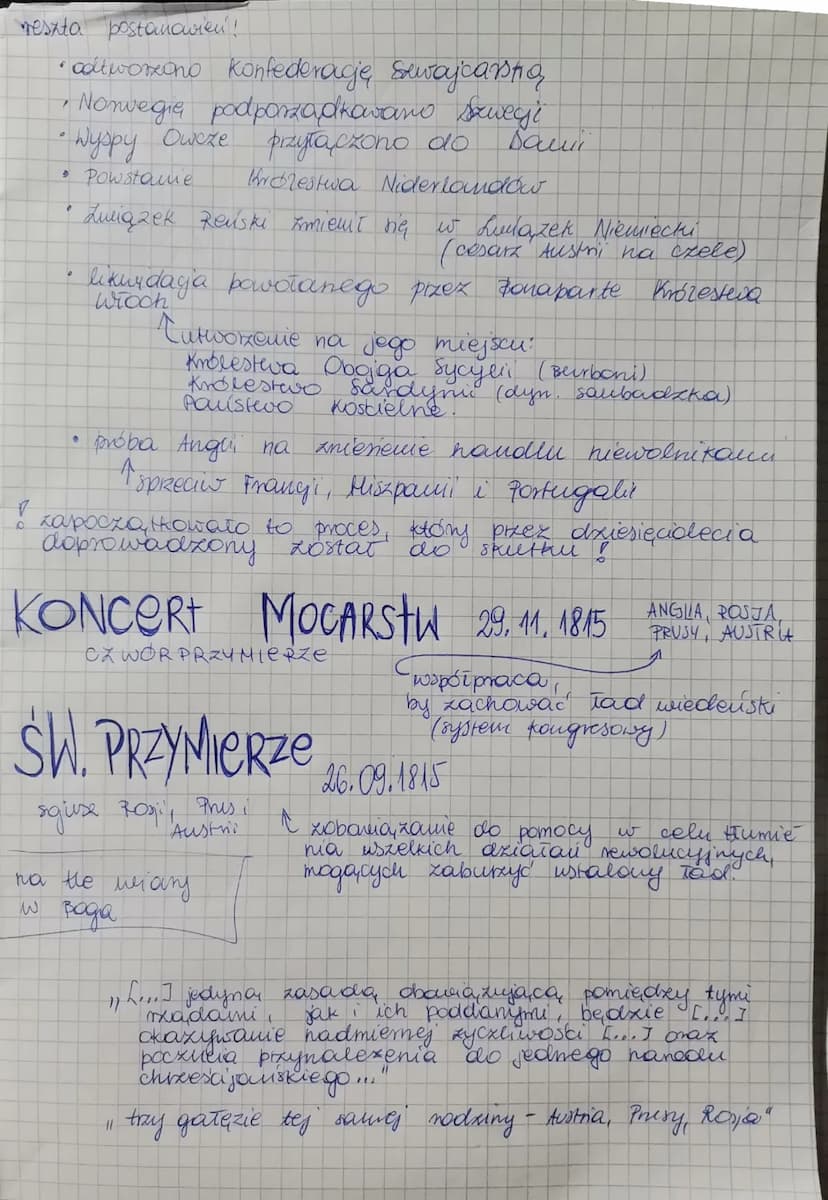 reszta postanowień!
• odtworzono Konfederację Szwajcarską
• Norwegię podporządkowano Szwecji
• Wyspy Owcze przyłączono do Danii
• Powstanie Królestwa Niderlandów
• Związek Reński zmienił się w Związek Niemiecki
(cesarz Austrii na czele)
• likwidacja powołanego przez Bonaparte Królestwa
Włoch
↑ utworzenie na jego miejscu:
Królestwa Obojga Sycylii (Burboni)
Królestwo Sardynii (dyn. sabaudzka)
Państwo Kościelne.
• próba Anglii na zniesienie handlu niewolnikami
↑ sprzeciw Francji, Hiszpanii i Portugalii
! zapoczątkowało to proces, który przez dziesięciolecia
doprowadzony został do skutku!
KONCERT MOCARSTW 29.11.1815 ANGLIA, ROSJA,
PRUSY, AUSTRIA
CZWÓRPRZYMIERZE
współpraca,
by zachować ład wiedeński
(system kongresowy)
ŚW. PRZYMIERZE
26.09.1815
sojusz Rosji, Prus i
Austrii
↑ zobowiązanie do pomocy w celu tłumie
nia wszelkich działań rewolucyjnych,
mogących zaburzyć ustalony ład.
na tle wiary
w Boga
„[...] jedyną zasadą obowiązującą pomiędzy tymi
rządami, jak i ich poddanymi, będzie [...]
okazywanie nadmiernej życzliwości [...] oraz
poczucia przynależenia do jednego narodu
chrześcijańskiego..."
„trzy gałęzie tej samej rodziny – Austria, Prusy, Rosja"